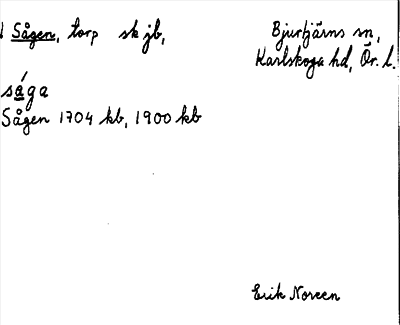 Sågen, torp sk jb,
Bjurtjärns sn,
Karlskoga hd, Ör. l.
såga
Sågen 1704 kb, 1900 kb
Erik Noreen